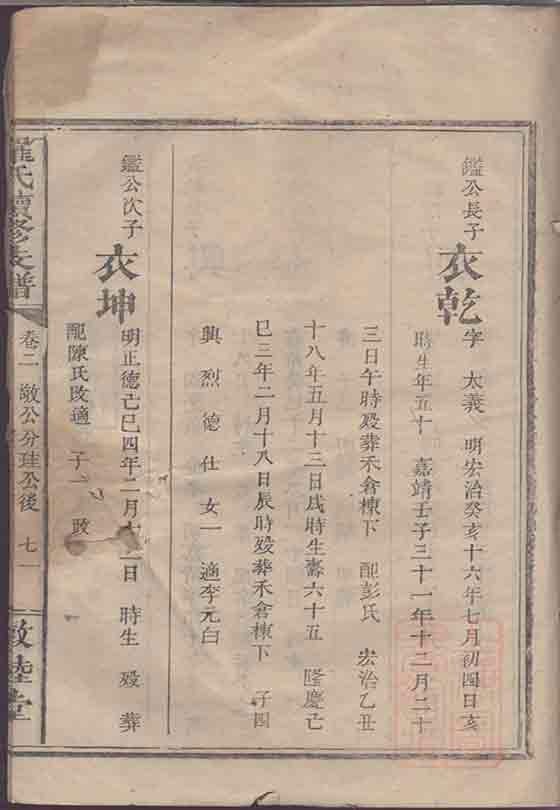 鑑公長子
衣乾
字 太義 明宏治癸亥十六年七月初四日亥
時生年五十 嘉靖壬子三十一年十二月二十
三日午時歿葬禾倉棟下 配彭氏 宏治乙丑
十八年五月十三日戌時生壽六十五 隆慶己
巳三年二月十八日辰時歿葬禾倉棟下 子四
興 烈 德 仕 女一 適李元白
鑑公次子
衣坤
明正德己巳四年二月十二日 時生 歿 葬
配陳氏改適 子一 政
羅氏續修支譜
卷二 敬公分珪公後 七一
敦睦堂